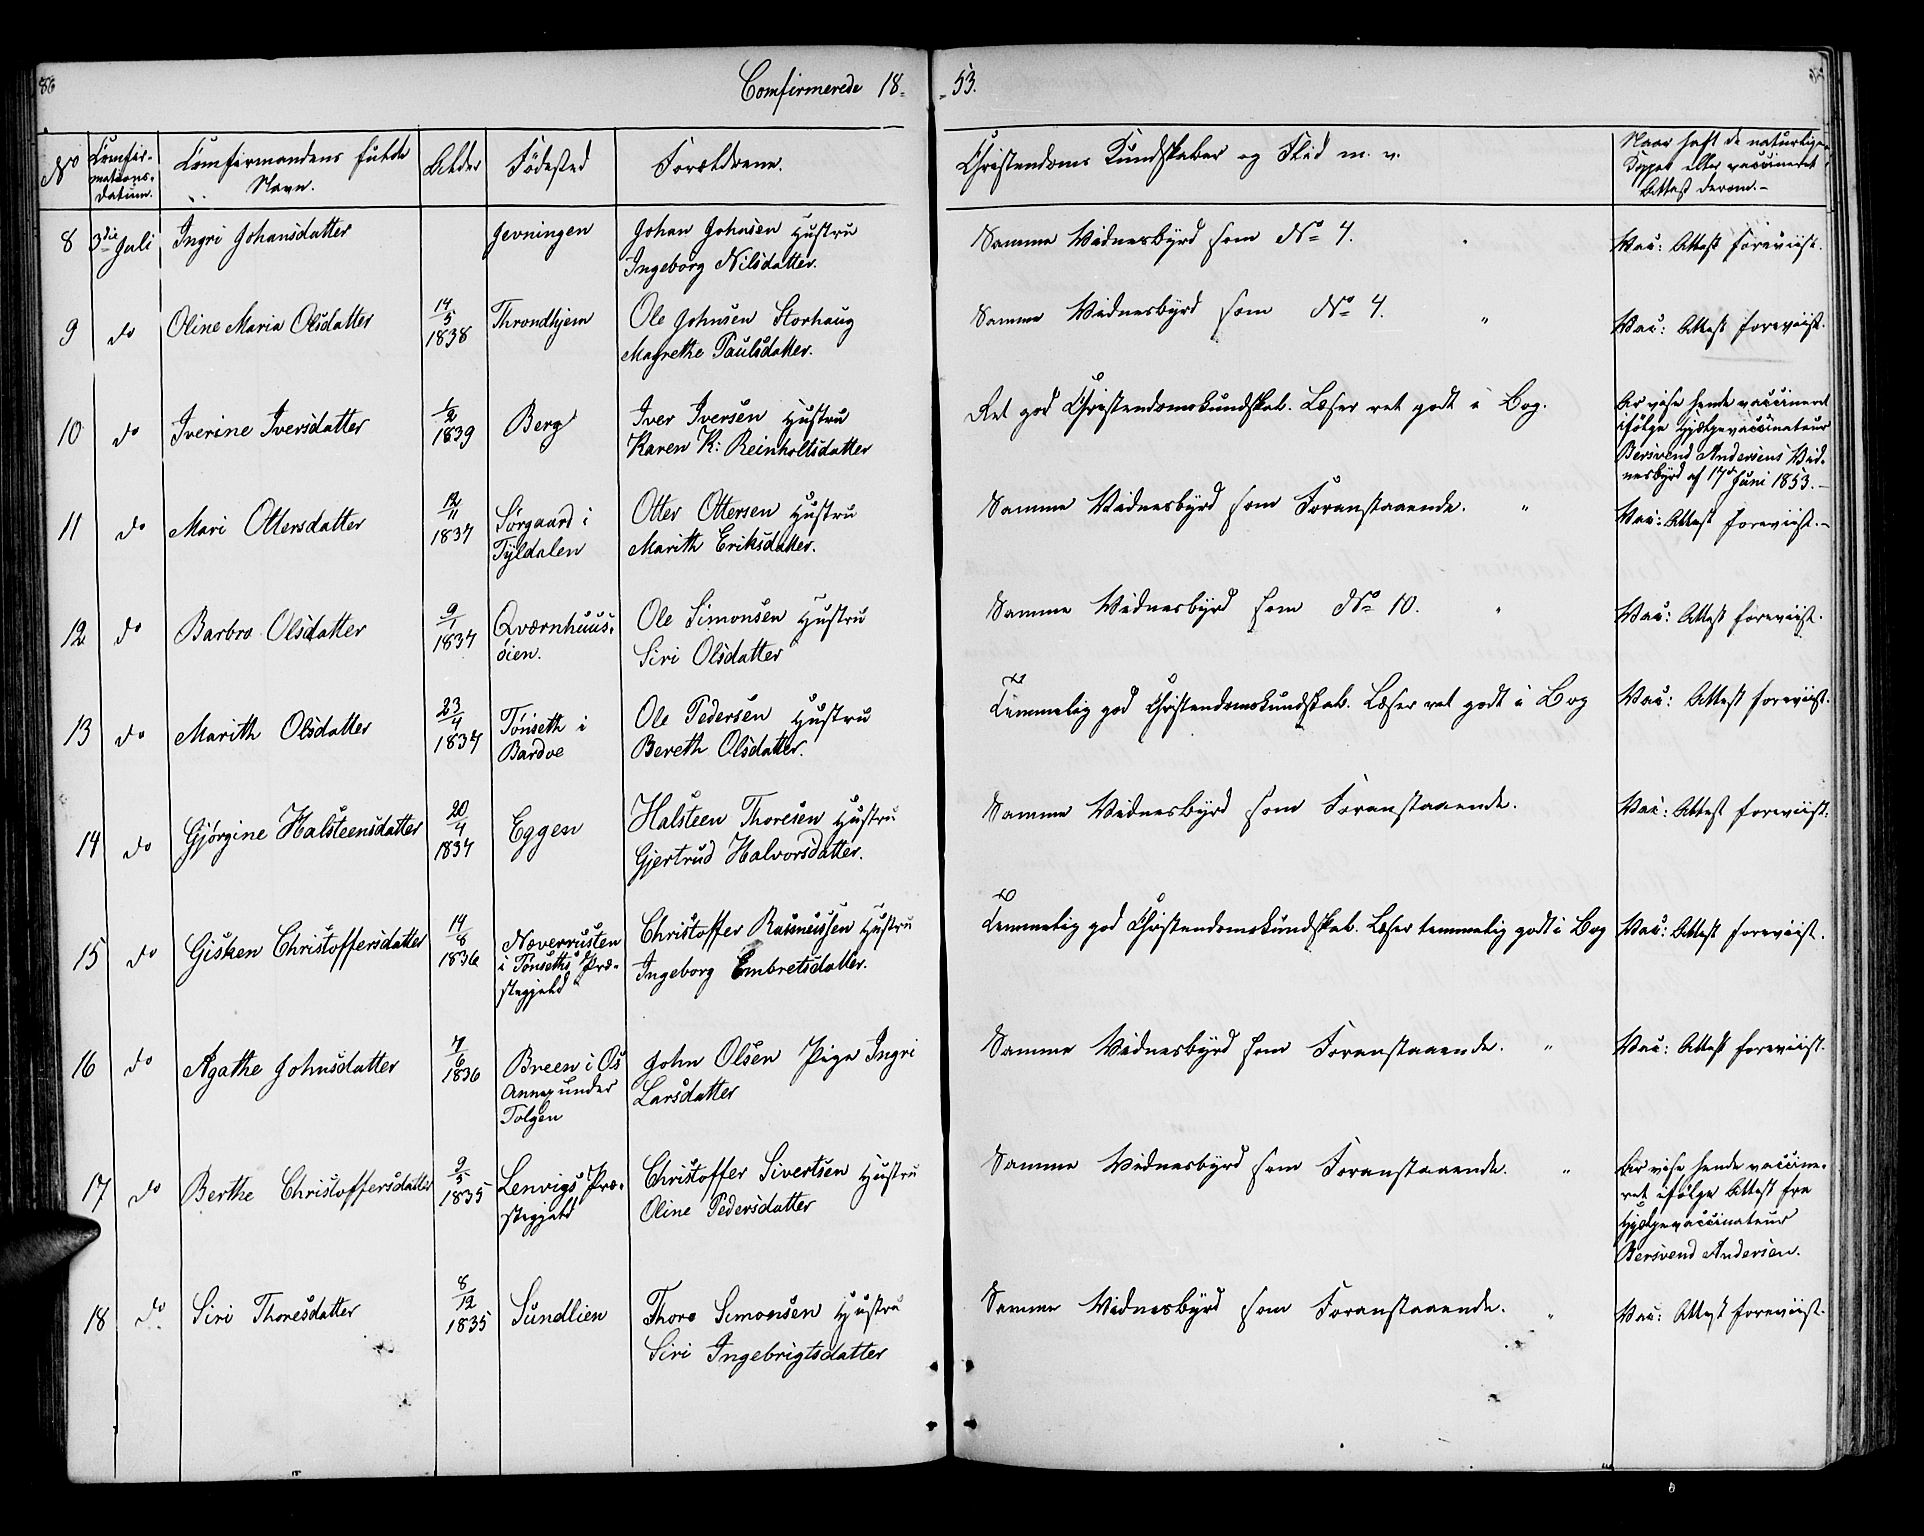 86
Comfirmerede 18-
-53.
No
Comfir-
mations-
datum.
Comfirmandens fulde
Navn.
Alder
Födested
Forældrene.
Christendoms Kundskaber og Flid m. v.
Naar haft de naturlige
Kopper eller vaccineret
Attest derom.-
8 3die Juli Ingri Johansdatter Jevningen Johan Johnsen Hustru
Ingeborg Nilsdatter.
Samme Vidnesbyrd som No 4.
Vac: Attest foreviist.
9 do Oline Maria Olsdatter 14/5 1838 Throndhjem Ole Johnsen Storhaug
Magrethe Paulsdatter.
Samme Vidnesbyrd som No 4. "
Vac: Attest foreviist.
10 do Iverine Iversdatter 1/2 1839 Berg Iver Iversen Hustru
Karen K: Reinholtsdatter
Ret god Christendomskundskab. Læser ret godt i Bog.
Er vise hende vaccineret
ifölge Hjælpevaccinateur
Bersvend Andersens Vid-
nesbyrd af 17de Juni 1853.-
11 do Mari Ottersdatter 12/11 1837 Sørgaard i
Tyldalen
Otter Ottersen Hustru
Marith Eriksdatter.
Samme Vidnesbyrd som Foranstaaende. "
Vac: Attest foreviist.-
12 do Barbro Olsdatter 9/1 1837 Qværnhuus-
øien.
Ole Simonsen Hustru
Siri Olsdatter
Samme Vidnesbyrd som No 10. "
Vac: Attest foreviist.
13 do Marith Olsdatter 23/4 1837 Tönseth i
Bardoe
Ole Pedersen Hustru
Bereth Olsdatter.
Temmelig god Christendomskundskab. Læser ret godt i Bog
Vac: Attest foreviist.
14 do Gjørgine Halsteensdatter 20/4 1837 Eggen Halsteen Thoresen Hustru
Gjertrud Halvorsdatter.
Samme Vidnesbyrd som Foranstaaende.
Vac: Attest foreviist.
15 do Gisken Christoffersdatter 14/8 1836 Noverrusten
i Tönseths Præ-
stegjeld
Christoffer Rasmussen Hustru
Ingeborg Embretsdatter.
Temmelig god Christendomskundskab. Læser temmelig godt i Bog
Vac: Attest foreviist.
16 do Agathe Johnsdatter 7/6 1836 Breen i Os
Annex under
Tolgen
John Olsen Pige Ingri
Larsdatter
Samme Vidnesbyrd som Foranstaaende. "
Vac: Attest foreviist.
17 do Berthe Christoffersdatter 9/5 1835 Lenvigs Præ-
stegjeld
Christoffer Sivertsen Hustru
Oline Pedersdatter
Samme Vidnesbyrd som Foranstaaende. "
Er vise hende vaccine-
ret ifölge Attest fra
Hjælpevaccinateur
Bersvend Andersen.
18 do. Siri Thoresdatter 8/12 1835 Sundlien Thore Simonsen Hustru
Siri Ingebrigtsdatter
Samme Vidnesbyrd som Foranstaaende. "
Vac: Attest foreviist.